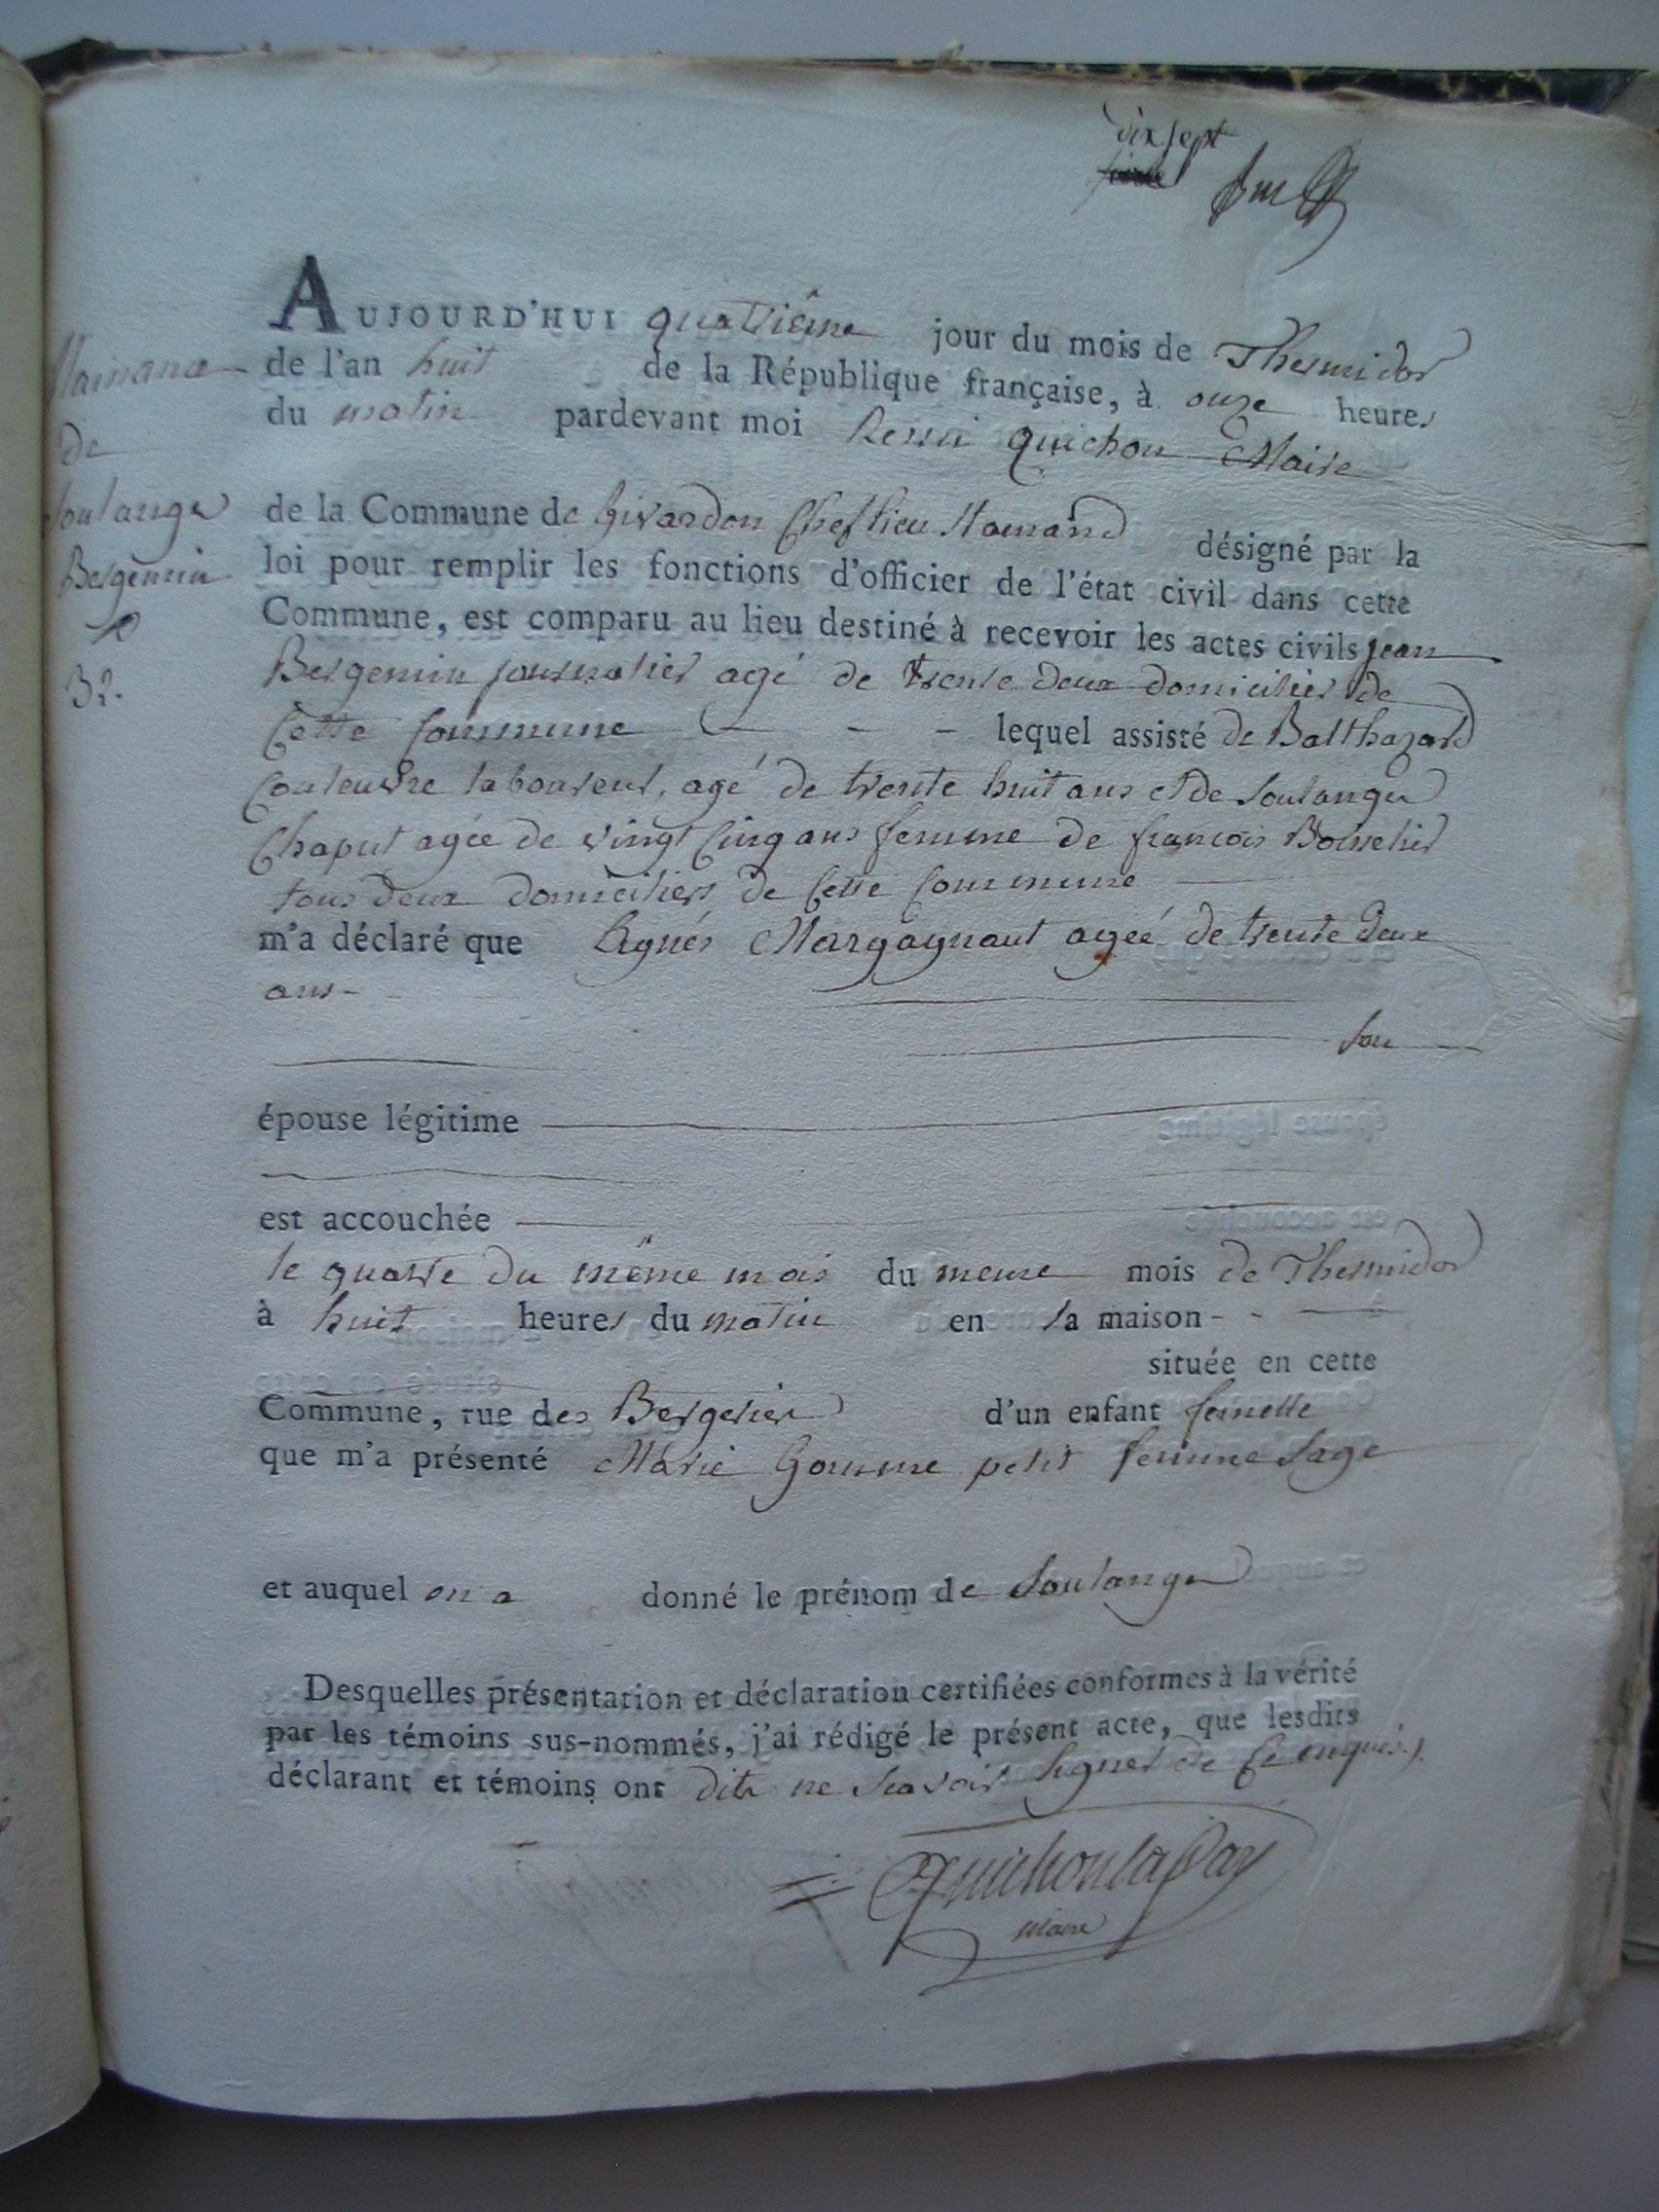 dix sept
AUJOURD'HUI quatriême jour du mois de Thermidor
de l'an huit de la République française, à onze heures
du matin pardevant moi Remi Quichon Maire
de la Commune de Givardon Cheflieu désigné par la
loi pour remplir les fonctions d'officier de l'état civil dans cette
Commune, est comparu au lieu destiné à recevoir les actes civils jean
Bergemin journalier agé de trente deux domicilier de
Cette Commune — — — lequel assisté de Balthazard
Couleuvre laboureur, agé de trente huit ans et de Soulange
Chaput agée de vingt Cinq ans femme de francois
tous deux domiciliers de Cette Commune
m'a déclaré que Agnés Margagnaut ageé de trente deux
ans -
Son
épouse légitime
est accouchée
le quatre du même mois du meme mois de Thermidor
à huit heures du matin en sa maison - -
située en cette
Commune, rue des Bergeries d'un enfant femelle
que m'a présenté Marie Gomme petit femme Sage
et auquel on a donné le prénom de Soulange
Desquelles présentation et déclaration certifiées conformes à la vérité
par les témoins sus-nommés, j'ai rédigé le présent acte, que lesdits
déclarant et témoins ont dits ne Scavoir Signer de Ce enquis.
Quichon
maire
Naissance
de
Soulange
Bergemin
32.